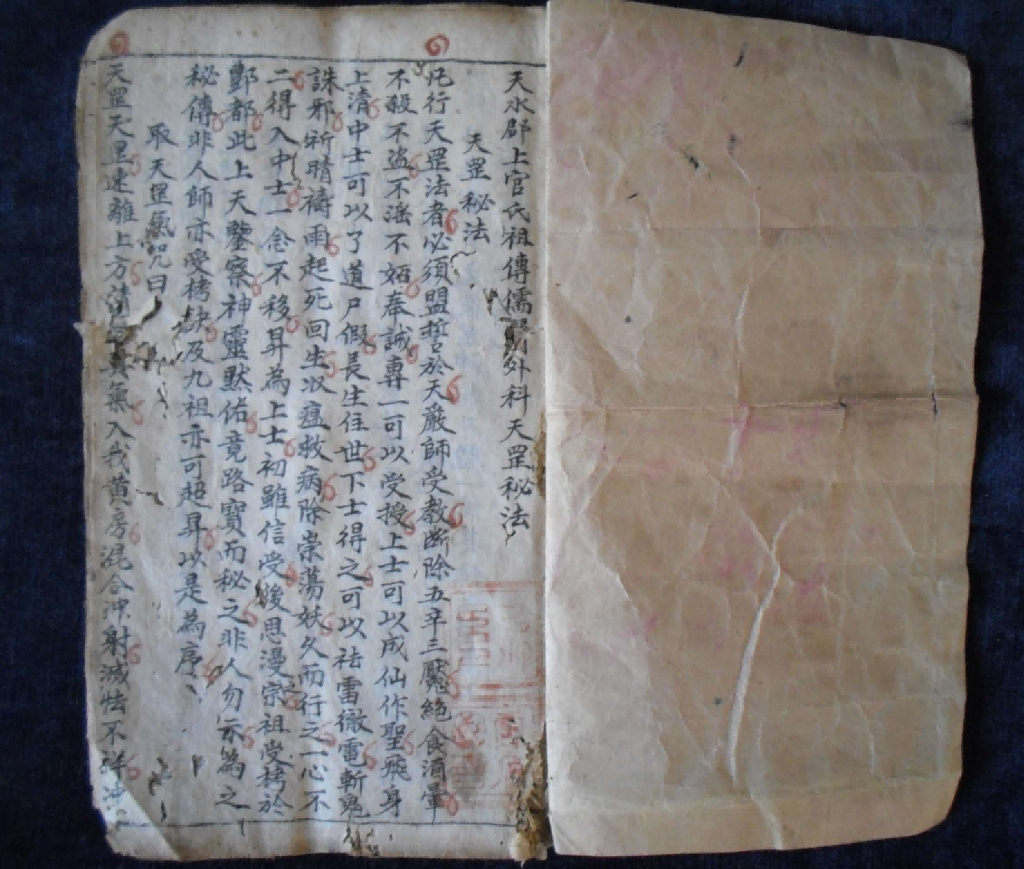 天水郡上官氏祖傳儒醫外科天罡秘法
天罡秘法
凡行天罡法者必須盟誓於天嚴師受教断除五辛三魘絕食酒暈
不殺不盗不滛不妬奉誠專一可以受授上士可以成仙作聖飛身
上清中士可以了道尸假長生住世下士得之可以祛雷徹電斬鬼
誅邪祈晴禱雨起死回生収瘟救病除祟蕩妖久而行之一心不
二得入中士一念不移昇為上士初雖信受後思漫宗祖受栲於
酆都此上天鑒察神靈默佑竟路寳而秘之非人勿示為之
秘傳非人師亦受栲訣及九祖亦可超昇以是為序
取天罡氣咒曰
天罡天罡速離上方清氣入我黃房混合冲射滅怯不祥冲